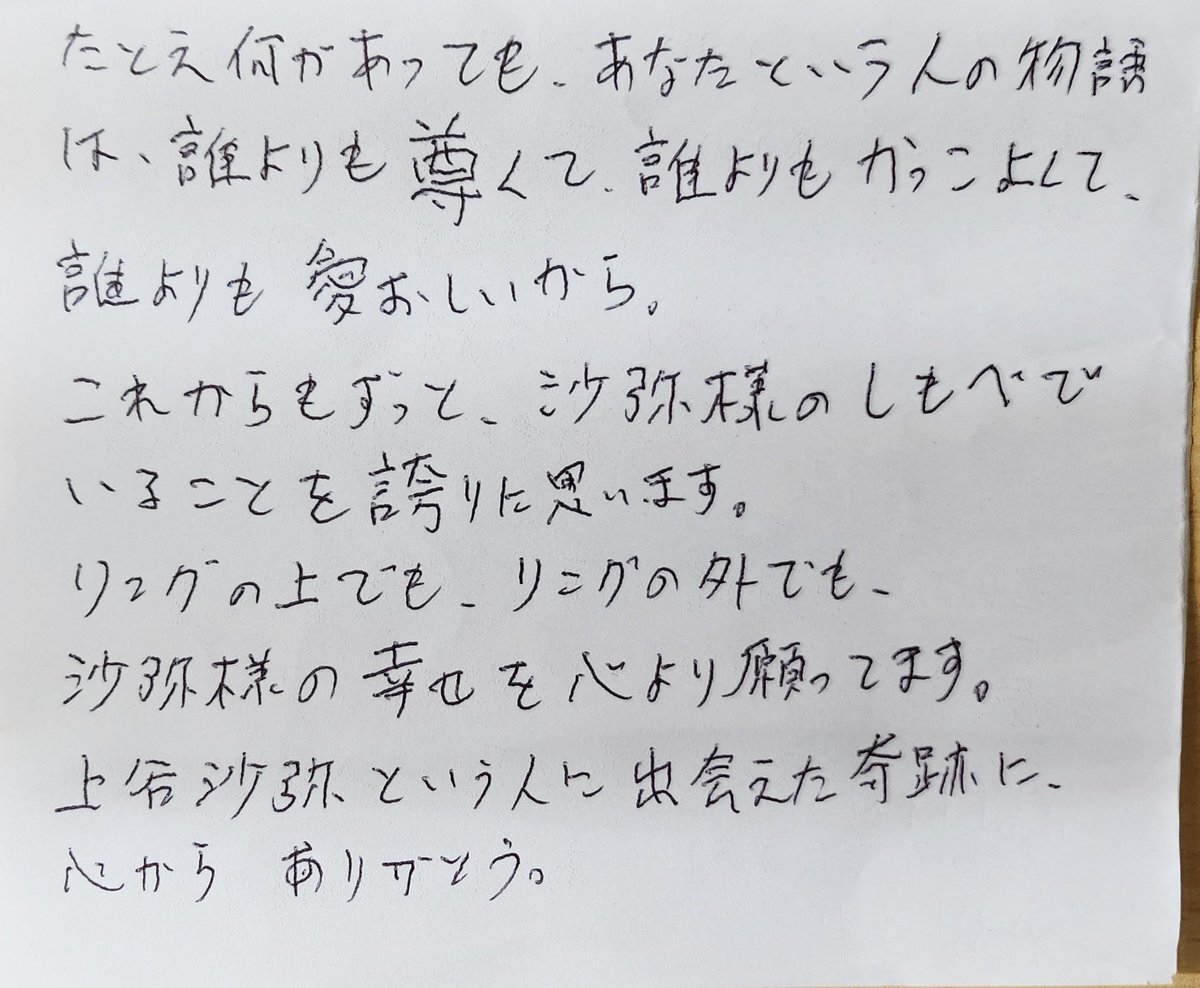 たとえ何があっても、あなたという人の物語
は、誰よりも尊くて、誰よりもかっこよくて、
誰よりも愛おしいから。
これからもずっと、沙弥様のしもべで
いることを誇りに思います。
リングの上でも、リングの外でも、
沙弥様の幸せを心より願ってます。
上谷沙弥という人に出会えた奇跡に、
心から ありがとう。